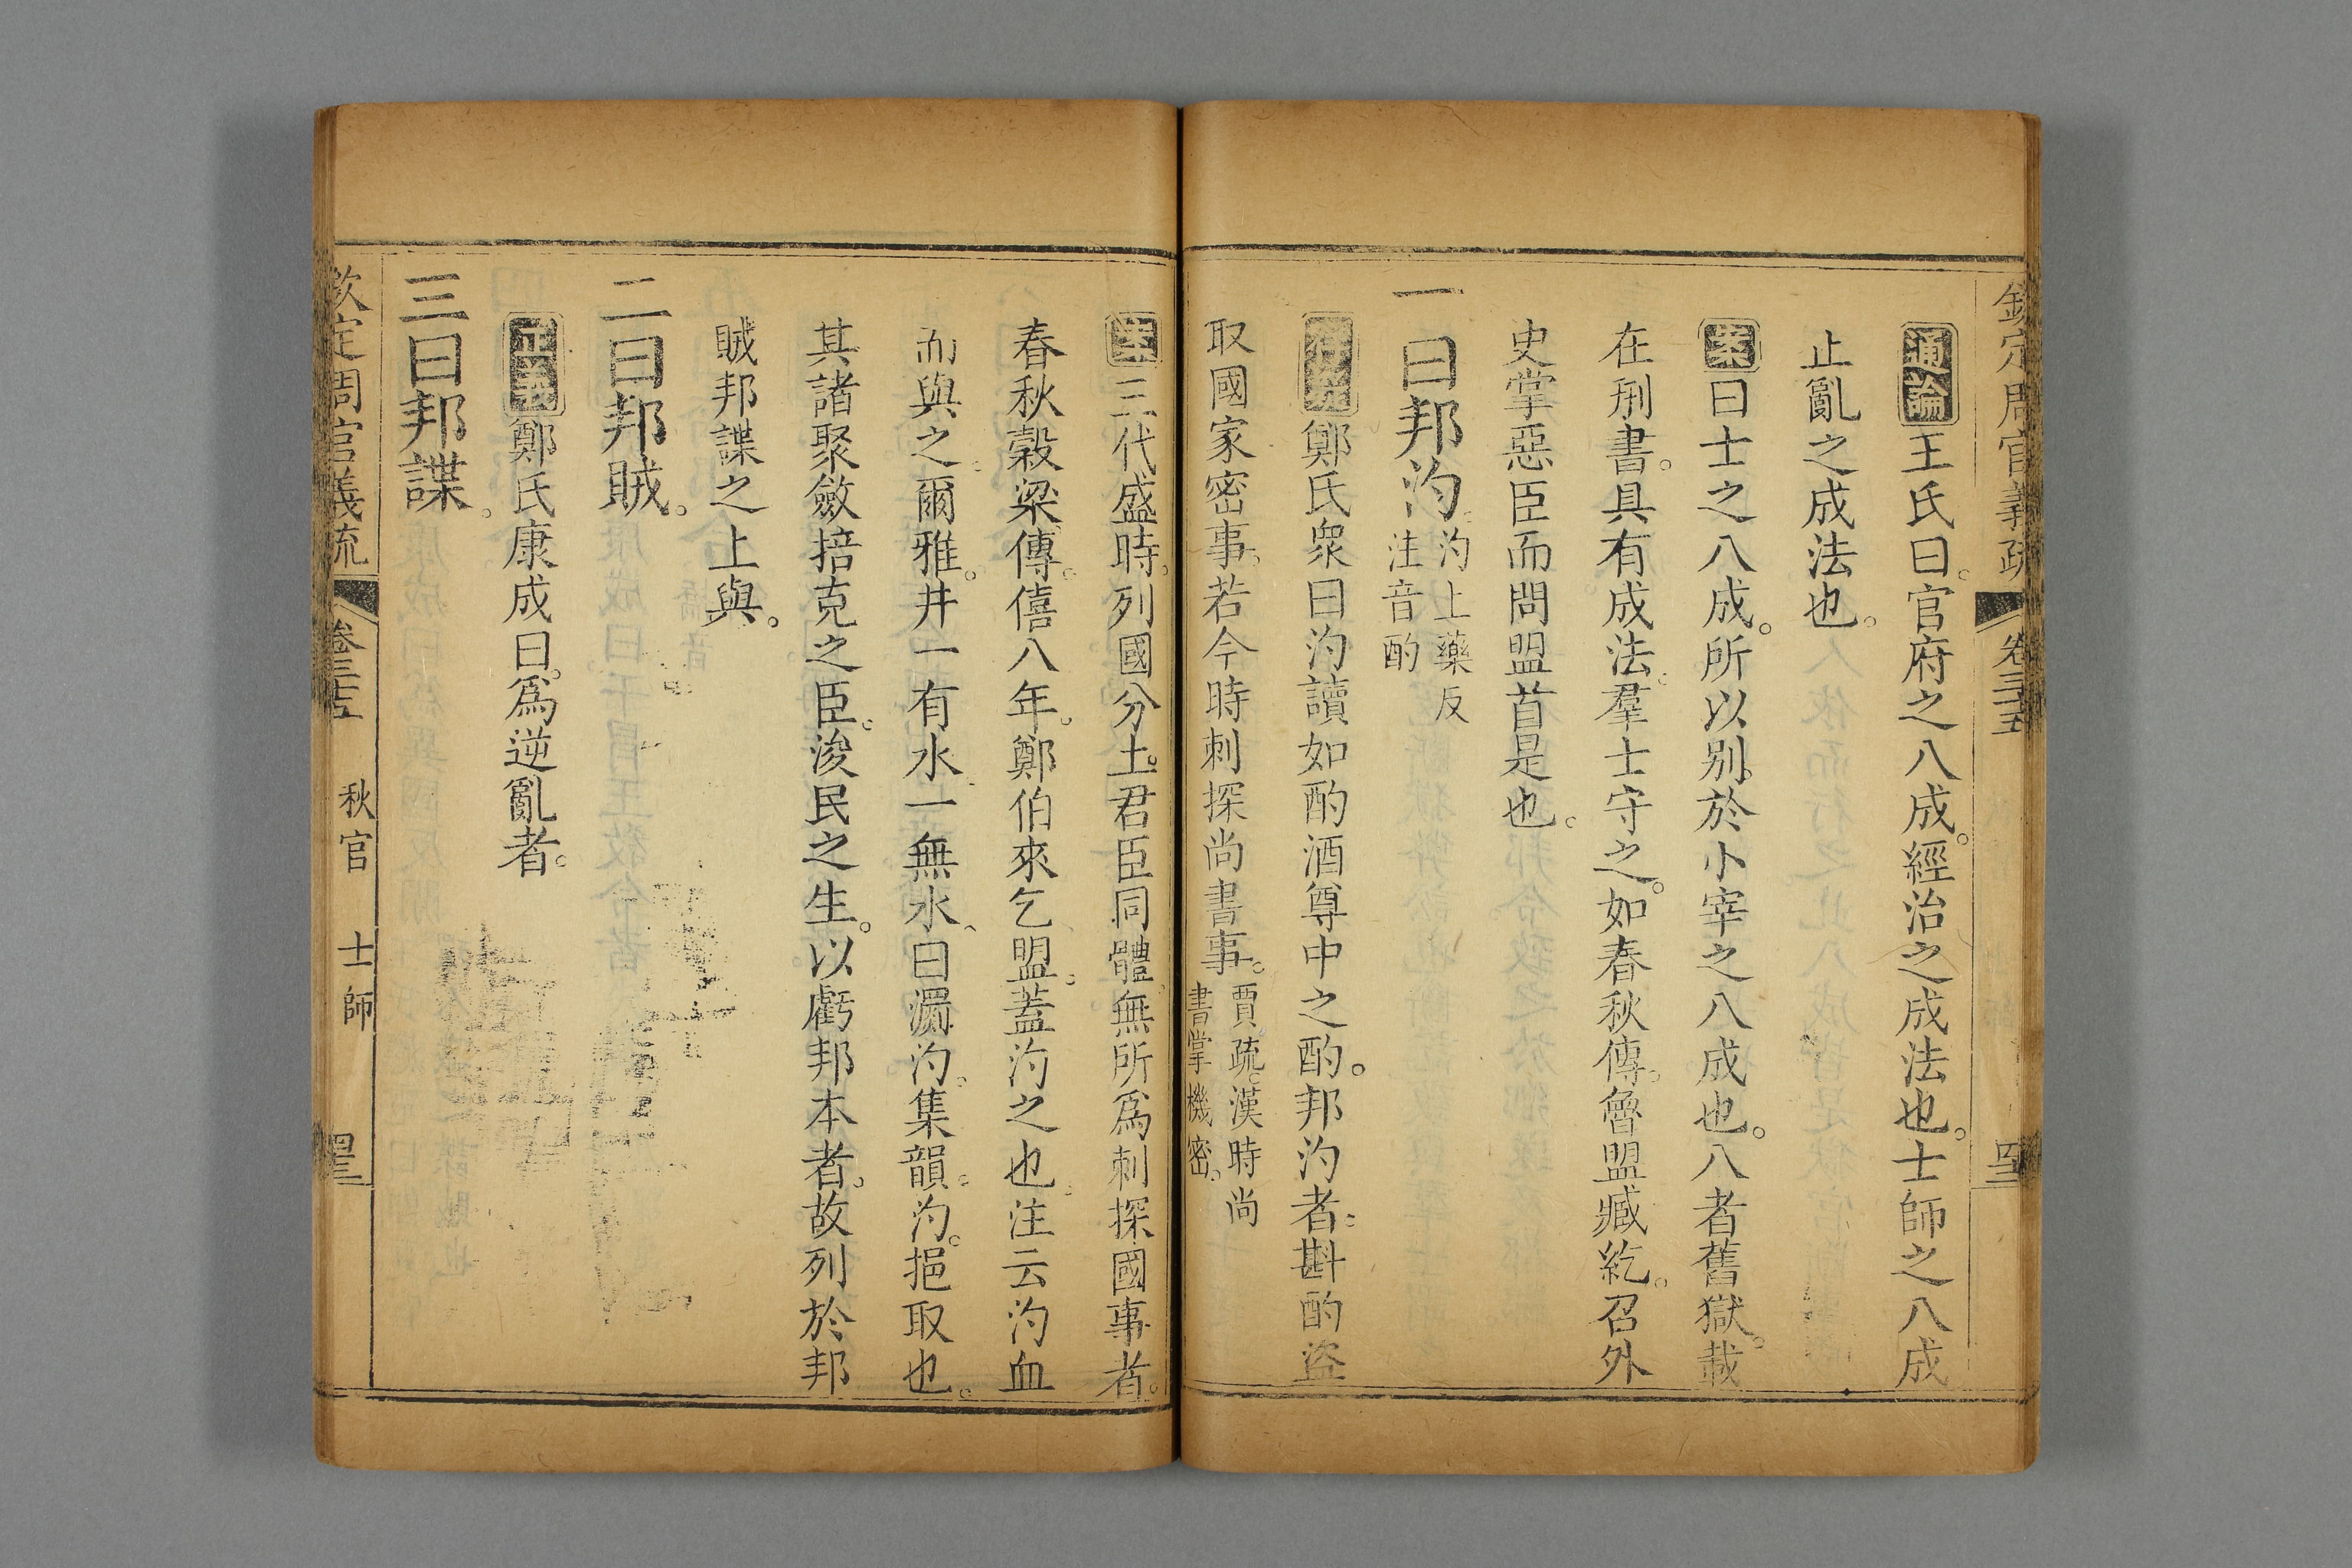 欽定周官義疏 卷三十五
通論王氏曰。官府之八成。經治之成法也。士師之八成
止亂之成法也。
案曰士之八成。所以别於小宰之八成也。八者舊獄。載
在刑書。具有成法。羣士守之。如春秋傳。魯盟臧紇。召外
史掌惡臣而問盟首是也。
一曰邦汋。汋上藥反
注音酌
鄭氏衆曰汋讀如酌酒尊中之酌。邦汋者。斟酌盜
取國家密事。若今時刺探尚書事。賈疏。漢時尚
書掌機密。
案三代盛時。列國分土。君臣同體。無所爲刺探國事者。
春秋榖梁傳。僖八年。鄭伯來乞盟。蓋汋之也。注云汋血
而與之。爾雅。井一有水、一無水、曰瀱汋。集韻。汋。挹取也。
其諸聚斂掊克之臣。浚民之生。以虧邦本者。故列於邦
賊邦諜之上與。
二曰邦賊。
正義鄭氏康成曰。爲逆亂者。
三曰邦諜。
欽定周官義疏 卷三十五 秋官 士師